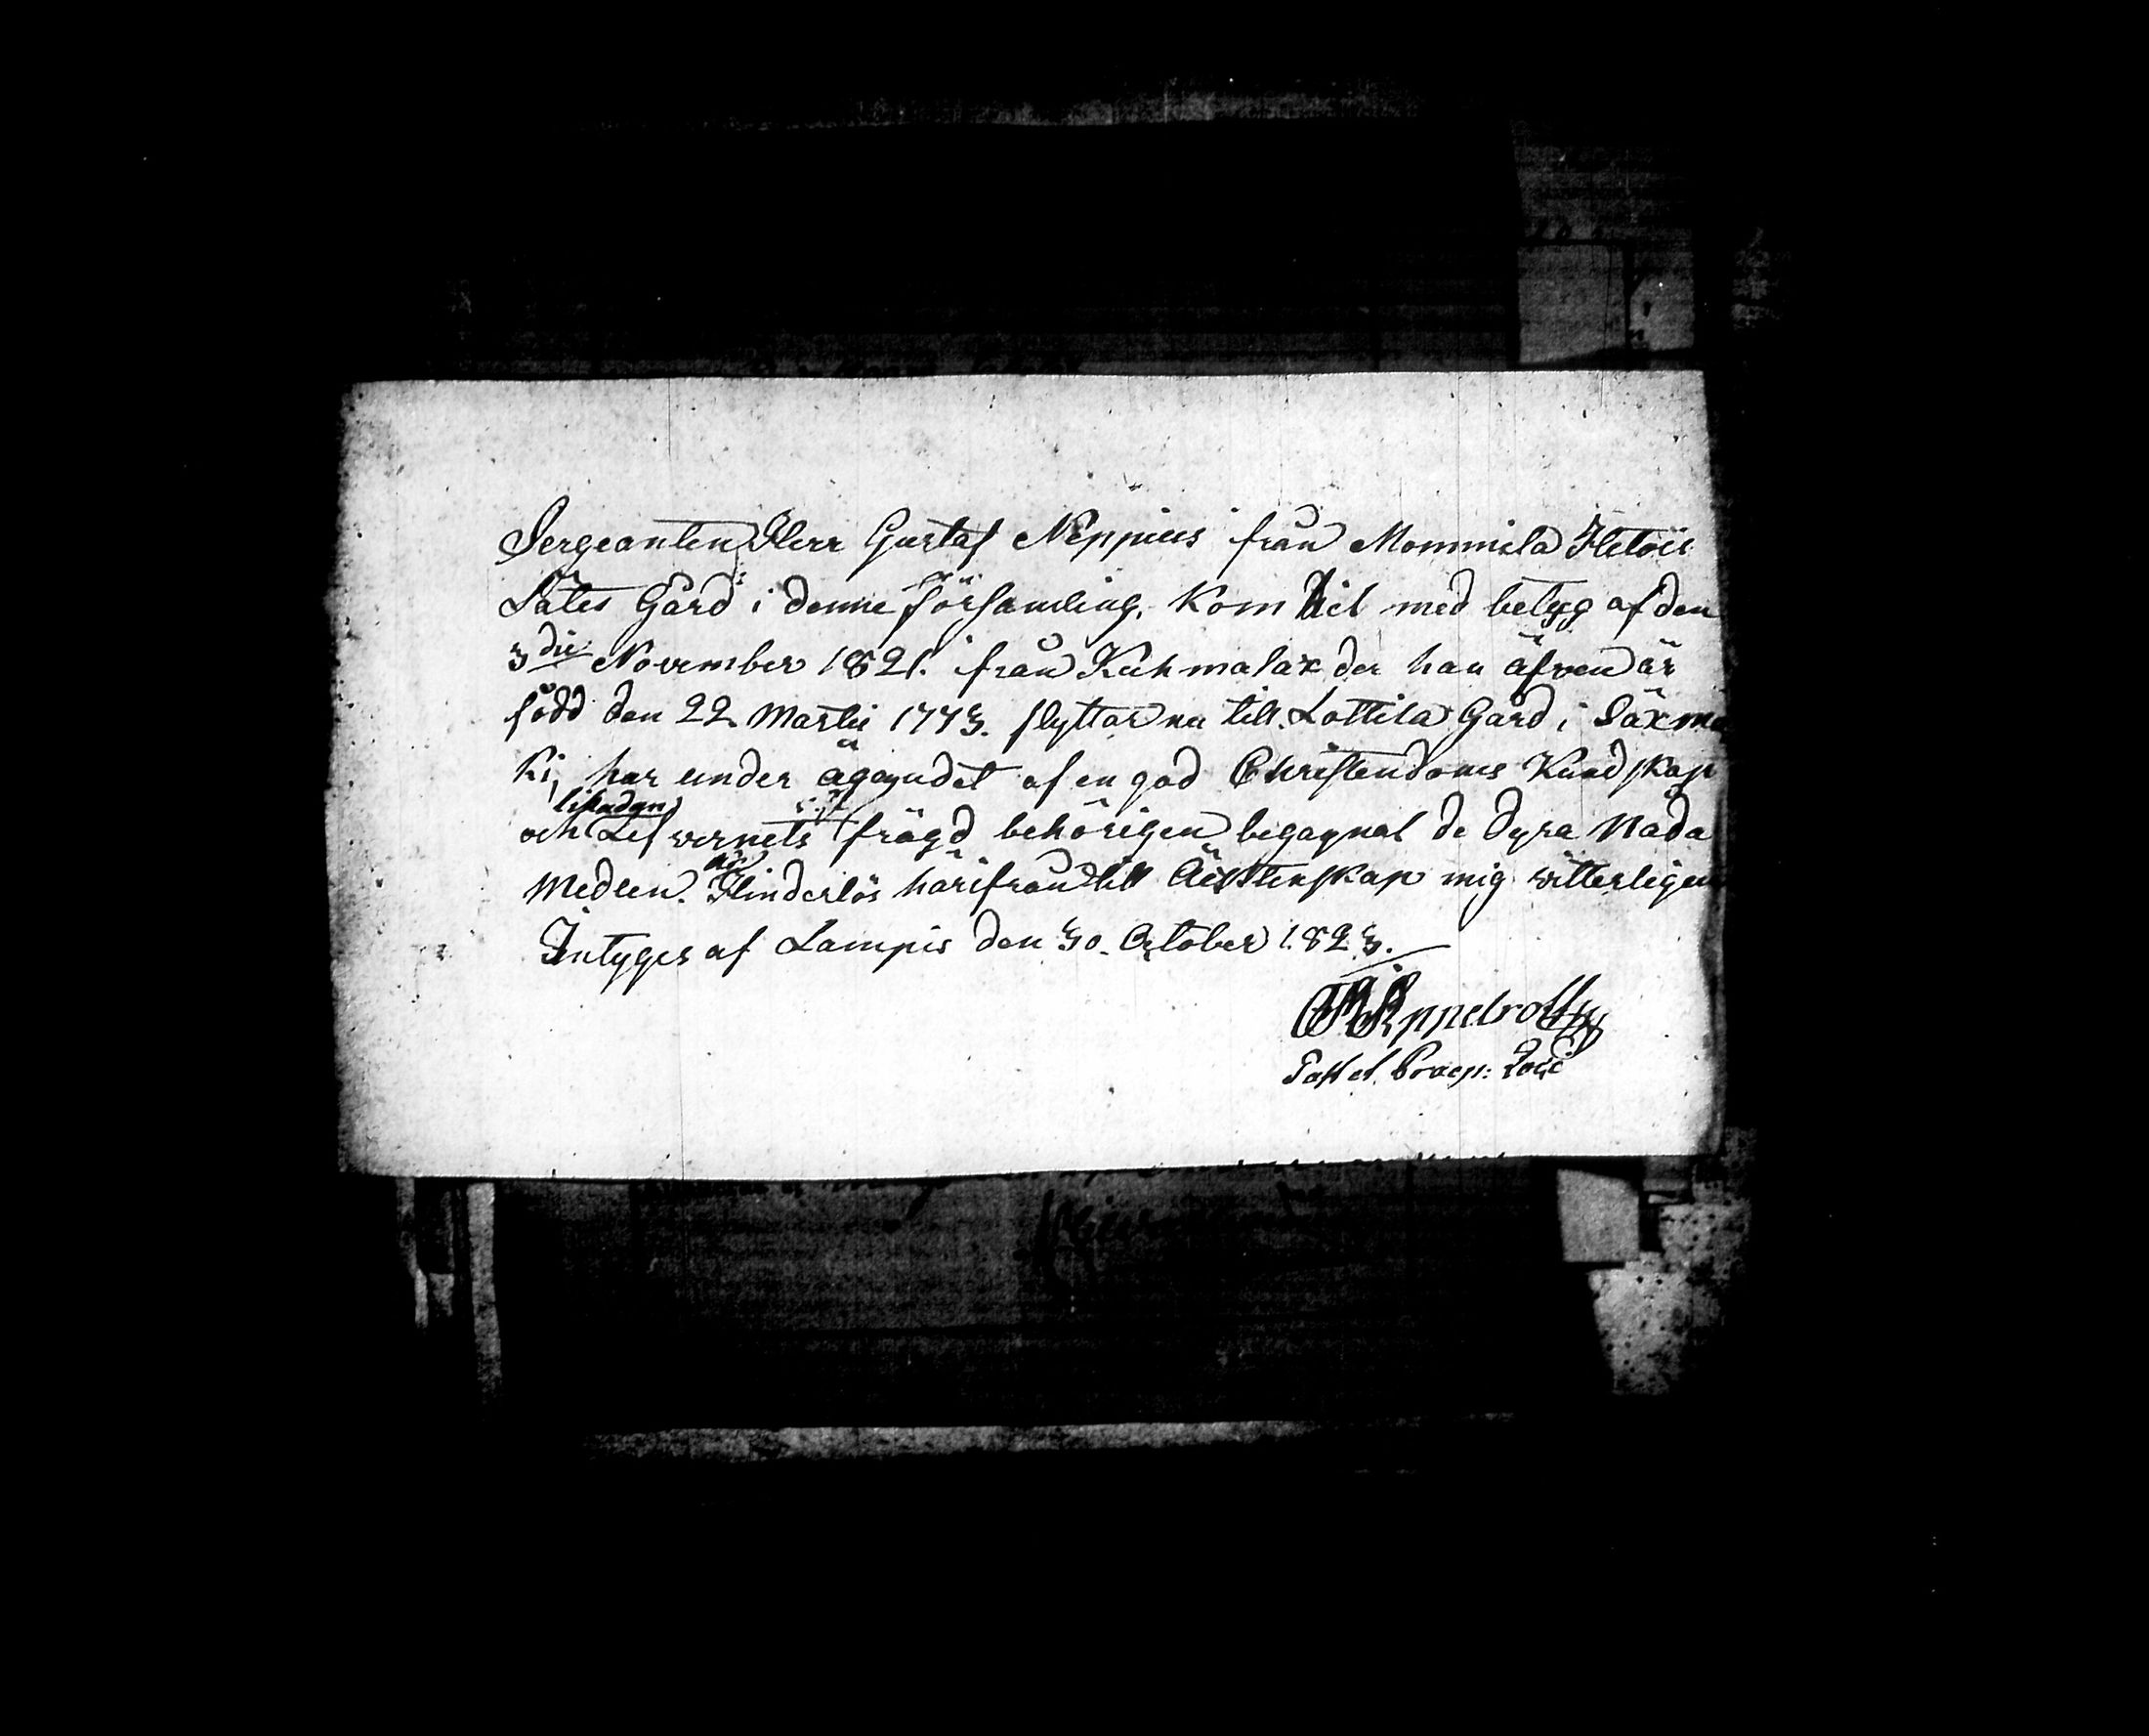 Sergeanten Herr Gustaf Neppius från Mommila Hetois
Sätes Gård i denne församling, Kom hit med betyg af den
3die November 1821. från Kuhmalax der han äfven är
född den 22 Martii 1773. flyttar nu till Lottila Gård i Säxmä
ki, har under ägandet af en god Christendoms Kundskap
och Lefvernets frägd behörigen begagnat de dyra Nåda
Medlen. Är Hinderlös härifrån till Äcktenskap mig witterligen
Intyges af Lampis den 30. October 1823.
Appelroth
Past et. Praep: Loci